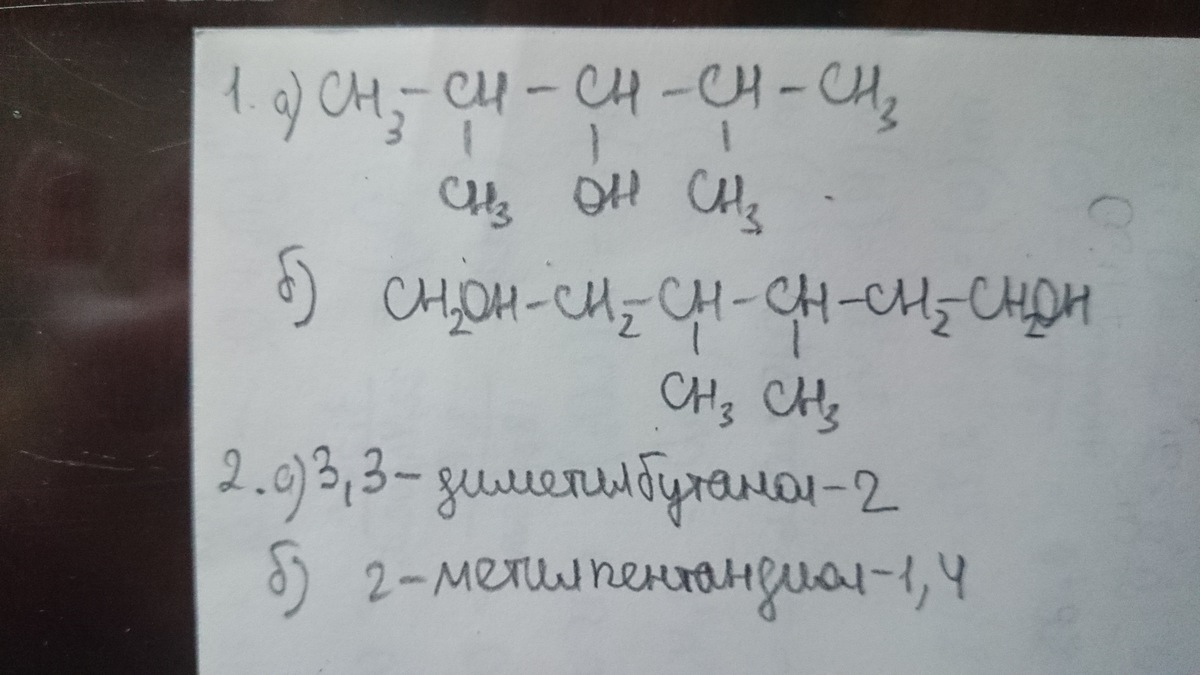 1. а) CH₃ – CH – CH – CH – CH₃
| | |
CH₃ OH CH₃
б) CH₂OH – CH₂ – CH – CH – CH₂ – CH₂OH
| |
CH₃ CH₃
2. а) 3,3 – диметилбутанол – 2
б) 2 – метилпентандиол – 1,4